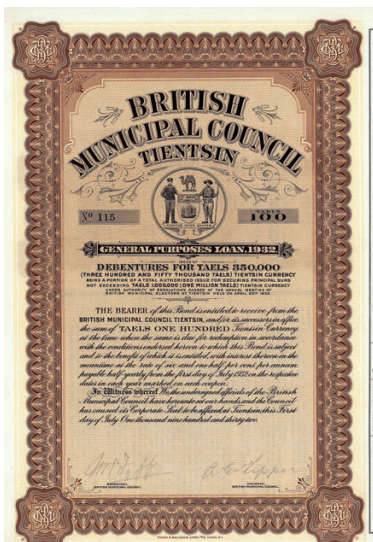 BRITISH
MUNICIPAL COUNCIL
TIENTSIN
No 115
TAELS
100
GENERAL PURPOSES LOAN, 1932
ISSUE OF
DEBENTURES FOR TAELS 350,000
(THREE HUNDRED AND FIFTY THOUSAND TAELS) TIENTSIN CURRENCY
BEING A PORTION OF A TOTAL AUTHORISED ISSUE FOR SECURING PRINCIPAL SUMS
NOT EXCEEDING TAELS 1,000,000 (ONE MILLION TAELS) TIENTSIN CURRENCY
UNDER AUTHORITY OF RESOLUTIONS PASSED AT THE ANNUAL MEETING OF
BRITISH MUNICIPAL ELECTORS AT TIENTSIN HELD 20 APRIL 1932
THE BEARER of this Bond is entitled to receive from the
BRITISH MUNICIPAL COUNCIL TIENTSIN, and/or its successors in office
the sum of TAELS ONE HUNDRED Tientsin Currency
at the time when the same is due for redemption in accordance
with the conditions endorsed hereon to which this Bond is subject
and to the benefit of which it is entitled, with interest thereon in the
meantime at the rate of six and one half per cent per annum
payable half-yearly from the first day of July 1932 on the respective
dates in each year marked on each coupon.
In Witness whereof We the undersigned officials of the British
Municipal Council have hereunto set our hands, and the Council
has caused its Corporate Seal to be affixed at Tientsin, this First
day of July One thousand nine hundred and thirty two.
SECRETARY,
BRITISH MUNICIPAL COUNCIL.
CHAIRMAN,
BRITISH MUNICIPAL COUNCIL.